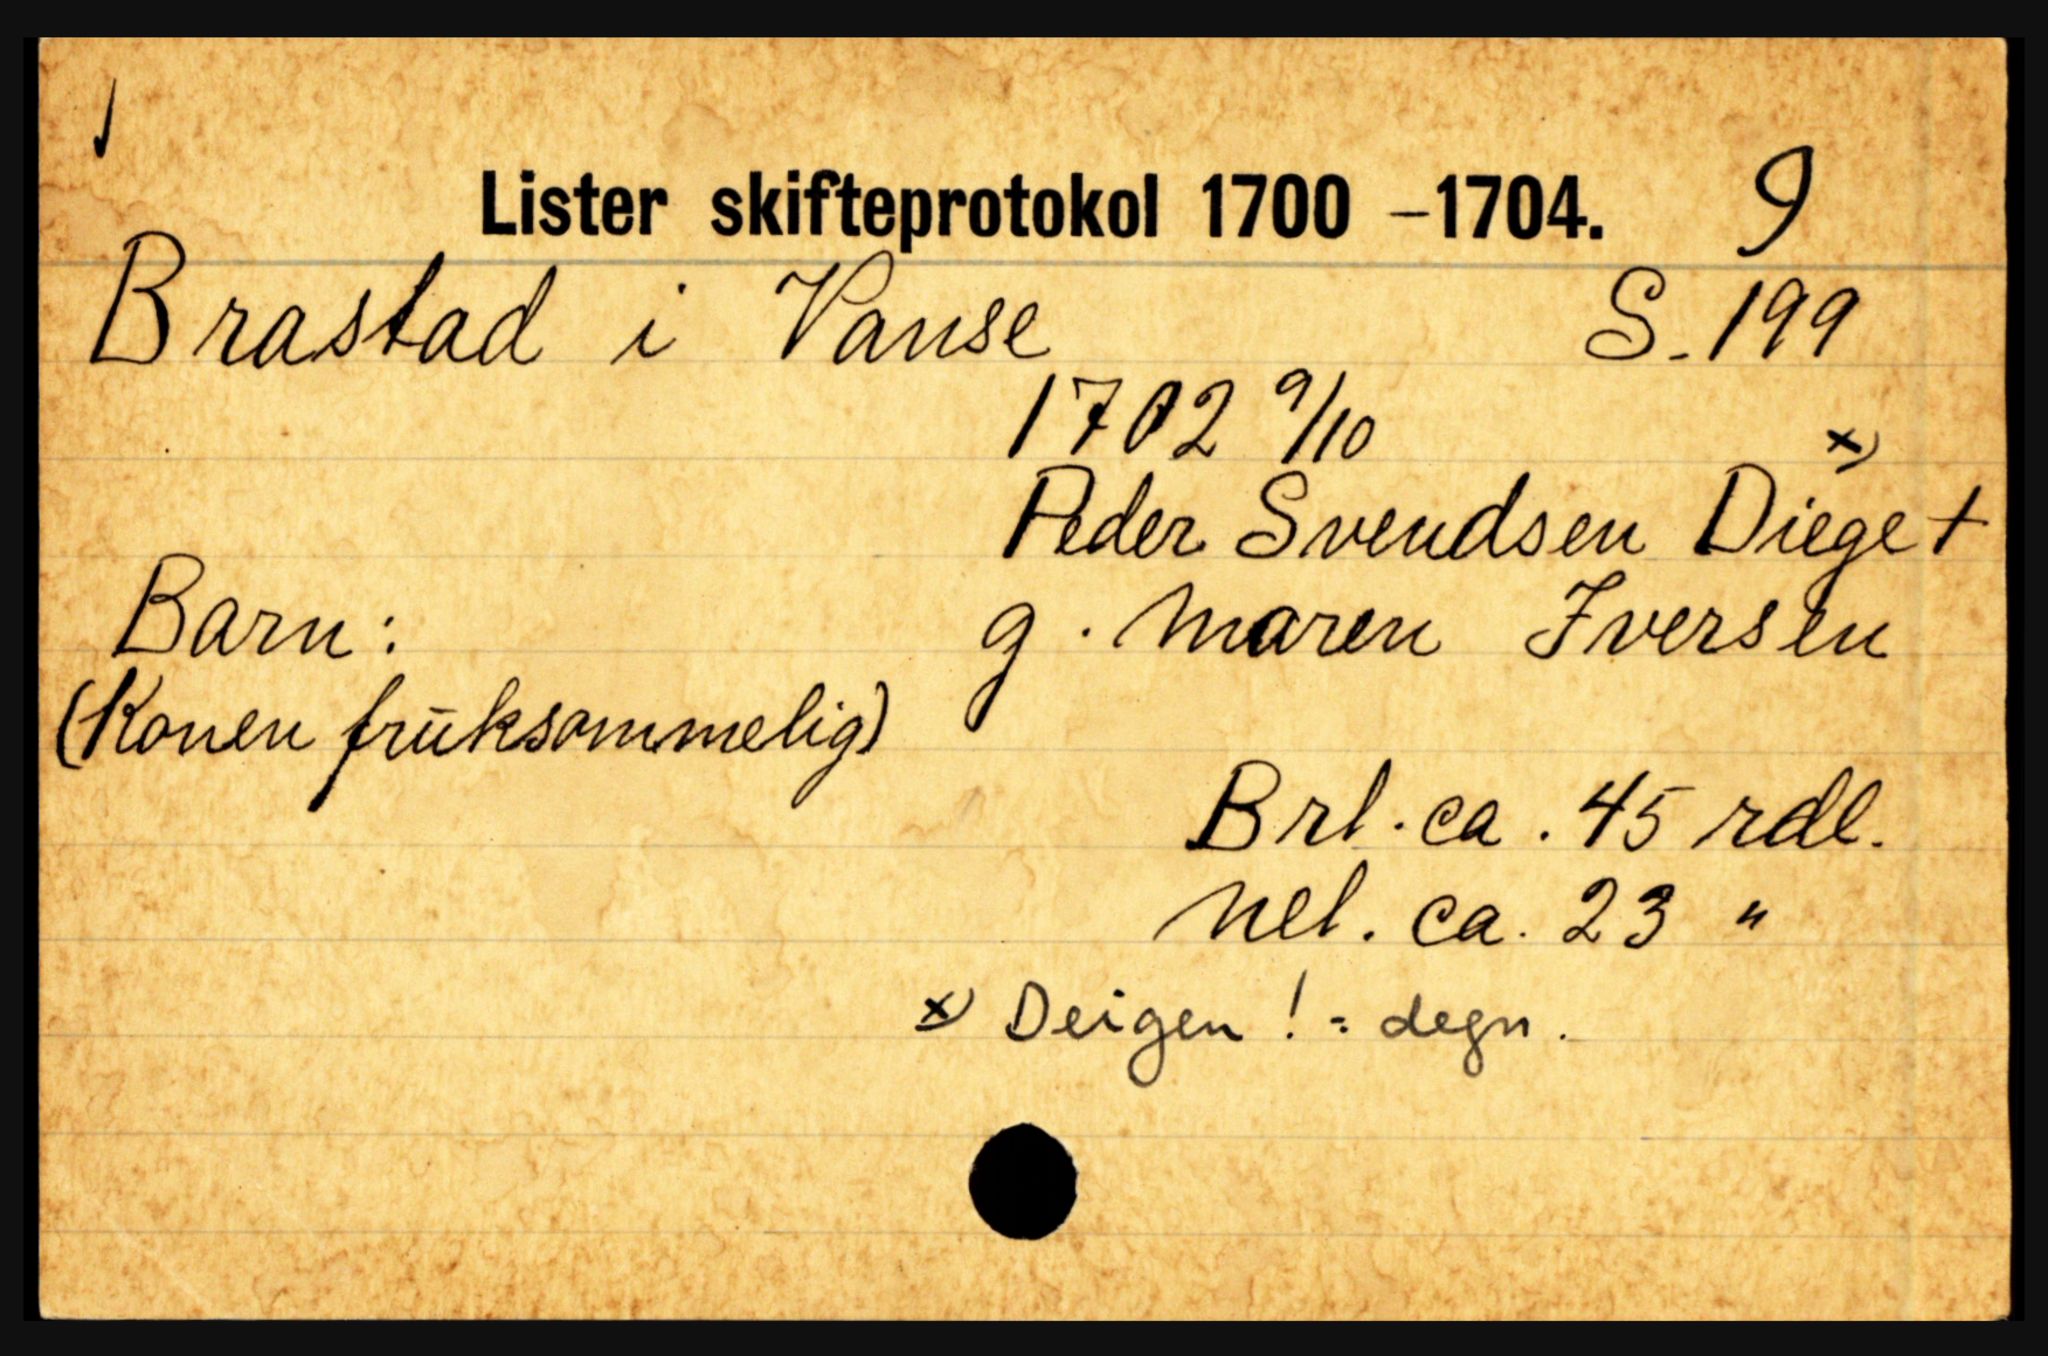 Lister skifteprotokol 1700 –1704. 9
Brastad i Vanse S. 199
1702 9/10 x)
Peder Svendsen Diege +
Barn: g. Maren Iversen
(Konen frūksommelig)
Brl. ca. 45 rdl.
Nel. ca. 23 "
x) Deigen! = degn.